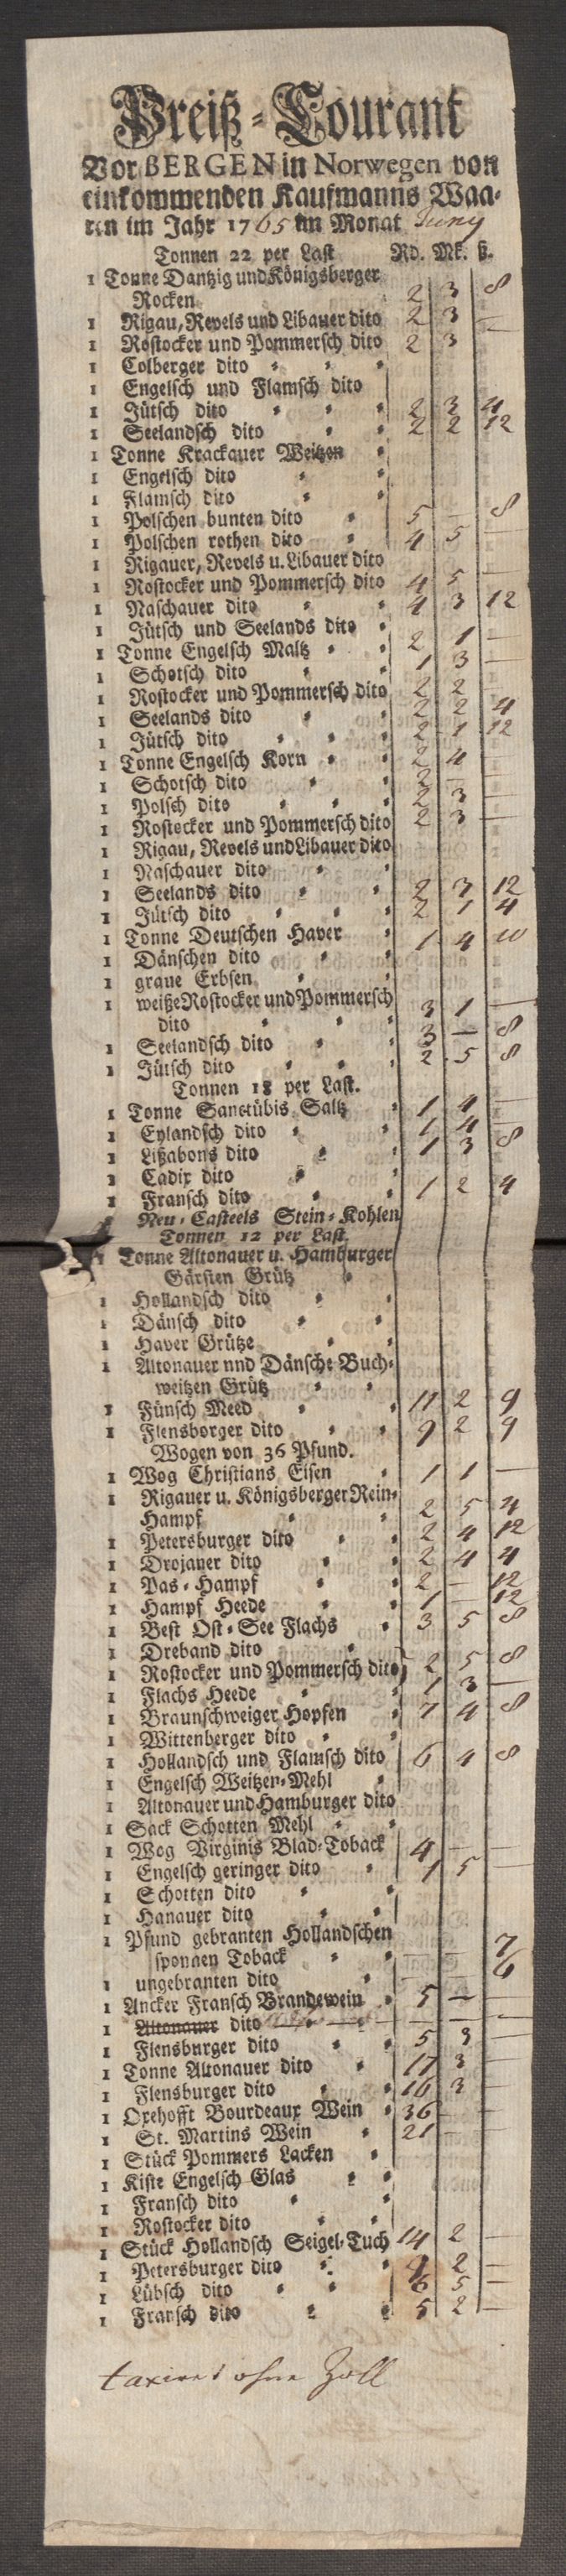 Preiß-Courant
Vor BERGEN in Norwegen von
einkommenden Kaufmanns Waa-
ren im Jahr 1765 im Monat Juny
Tonnen 22 per Last Rd. Mk. ß.
1 Tonne Dantzig und Königsberger
Rocken 2 3 8
1 Rigau, Revels und Libauer dito 2 3 —
1 Rostocker und Pommersch dito 2 3
1 Colberger dito
1 Engelsch und Flamsch dito
1 Jütsch dito 2 3 4
1 Seelandsch dito 2 2 12
1 Tonne Krackauer Weitzen
1 Engelsch dito
1 Flamsch dito
1 Polschen bunten dito 5 — 8
1 Polschen rothen dito 4 5 —
1 Rigauer, Revels u. Libauer dito
1 Rostocker und Pommersch dito 4 5 —
1 Naschauer dito 4 3 12
1 Jütsch und Seelands dito
1 Tonne Engelsch Maltz 2 1 —
1 Schotsch dito 1 3 —
1 Rostocker und Pommersch dito 2 2 —
1 Seelands dito 2 2 4
1 Jütsch dito 2 1 12
1 Tonne Engelsch Korn 2 4 —
1 Schotsch dito 2 —
1 Polsch dito 2 3 —
1 Rostocker und Pommersch dito 2 3 —
1 Rigau, Revels und Libauer dito
1 Naschauer dito
1 Seelands dito 2 3 12
1 Jütsch dito 2 1 4
1 Tonne Deutschen Haver 1 4 10
1 Dänschen dito
1 graue Erbsen
1 weiße Rostocker und Pommersch
dito 3 1 —
1 Seelandsch dito 3 — 8
1 Jütsch dito 2 5 8
Tonnen 18 per Last.
1 Tonne Sanctübis Saltz 1 4 —
1 Eylandsch dito 1 4
1 Lißabons dito 1 3 8
1 Cadix dito
1 Fransch dito 1 2 4
1 Neu-Casteels Stein-Kohlen
Tonnen 12 per Last.
1 Tonne Altonauer u. Hamburger
Gärsten Grütz
1 Hollandsch dito
1 Dänsch dito
1 Haver Grütze
1 Altonauer und Dänsche Buch-
weitzen Grütz
1 Fünsch Meed 11 2 9
1 Flensborger dito 9 2 9
Wogen von 36 Pfund.
1 Wog Christians Eisen 1 1 —
1 Rigauer u. Königsberger Rein-
Hampf 2 5 4
1 Petersburger dito 2 4 12
1 Drojaner dito 2 4 4
1 Pas-Hampf 2 — 12
1 Hampf Heede 1 — 12
1 Best Ost-See Flachs 3 5 8
1 Dreband dito
1 Rostocker und Pommersch dito 2 5 8
1 Flachs Heede 1 3 —
1 Braunschweiger Hopfen 7 4 8
1 Wittenberger dito
1 Hollandsch und Flamsch dito 6 4 8
1 Engelsch Weitzen-Mehl
1 Altonauer und Hamburger dito
1 Sack Schotten Mehl
1 Wog Virginis Blad-Toback 4 — —
1 Engelsch geringer dito 1 5 —
1 Schotten dito
1 Hanauer dito
1 Pfund gebranten Hollandschen
sponnen Toback — — 7
1 ungebranten dito — — 6
1 Ancker Fransch Brandewein 5 — —
1 Altonauer dito — — —
1 Flensburger dito 5 3 —
1 Tonne Altonauer dito 17 3 —
1 Flensburger dito 16 3 —
1 Oxehofft Bourdeaux Wein 36 —
1 St. Martins Wein 21 —
1 Stück Pommers Lacken
1 Kiste Engelsch Glas
1 Fransch dito
1 Rostocker dito
1 Stück Hollandsch Seigel-Tuch 14 2 —
1 Petersburger dito 9 2 —
1 Lübsch dito 6 5 —
1 Fransch dito 5 2 —
taxiret ohne Zoll